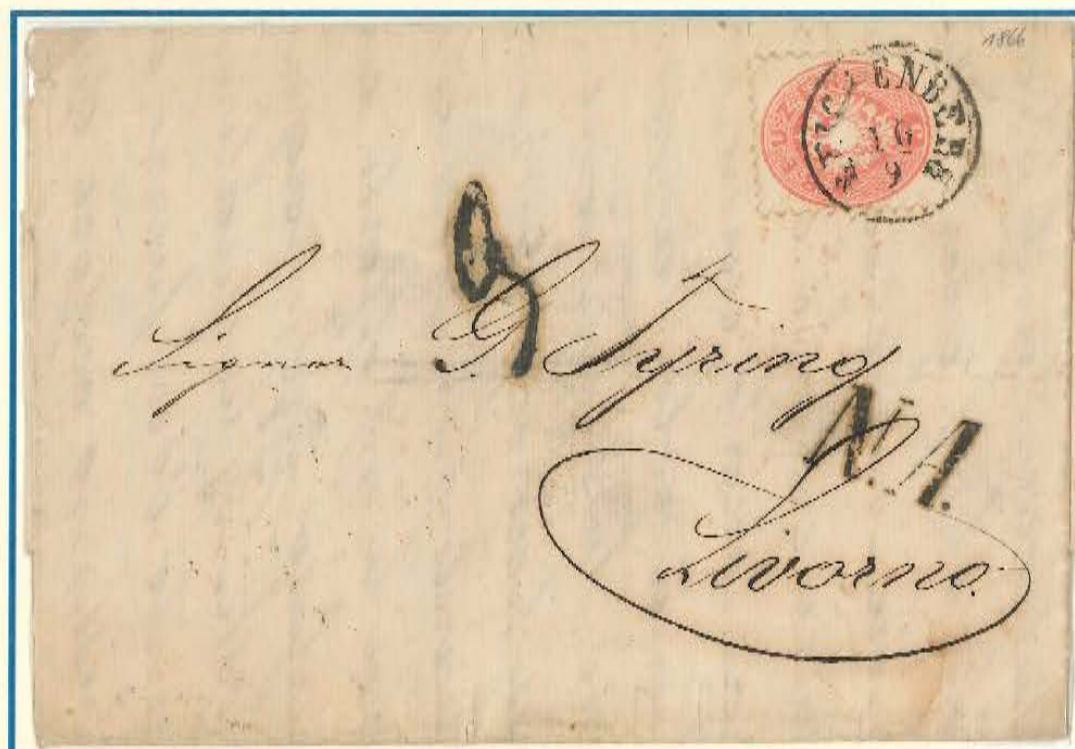 1866
REICHENBERG
16
9
Signor G. Syring
N. A.
Livorno.